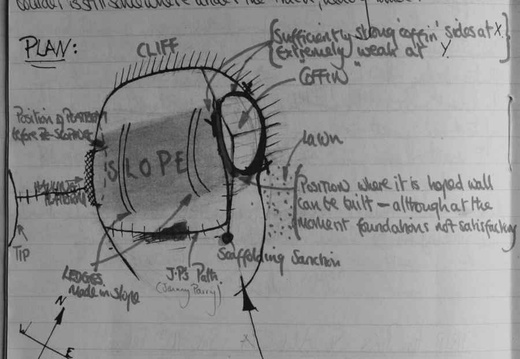 PLAN:
CLIFF
(Sufficiently strong 'coffin' sides at X.
Extremely weak at Y
COFFIN"
Position of
before
SLOPE
lawn
Position where it is hoped wall
can be built – although at the
moment foundations not satisfactory
TIP
LEDGES
Made in slope
J.P.'s Path.
(Jenny Parry).
Scaffolding Junction
N
W
E
X